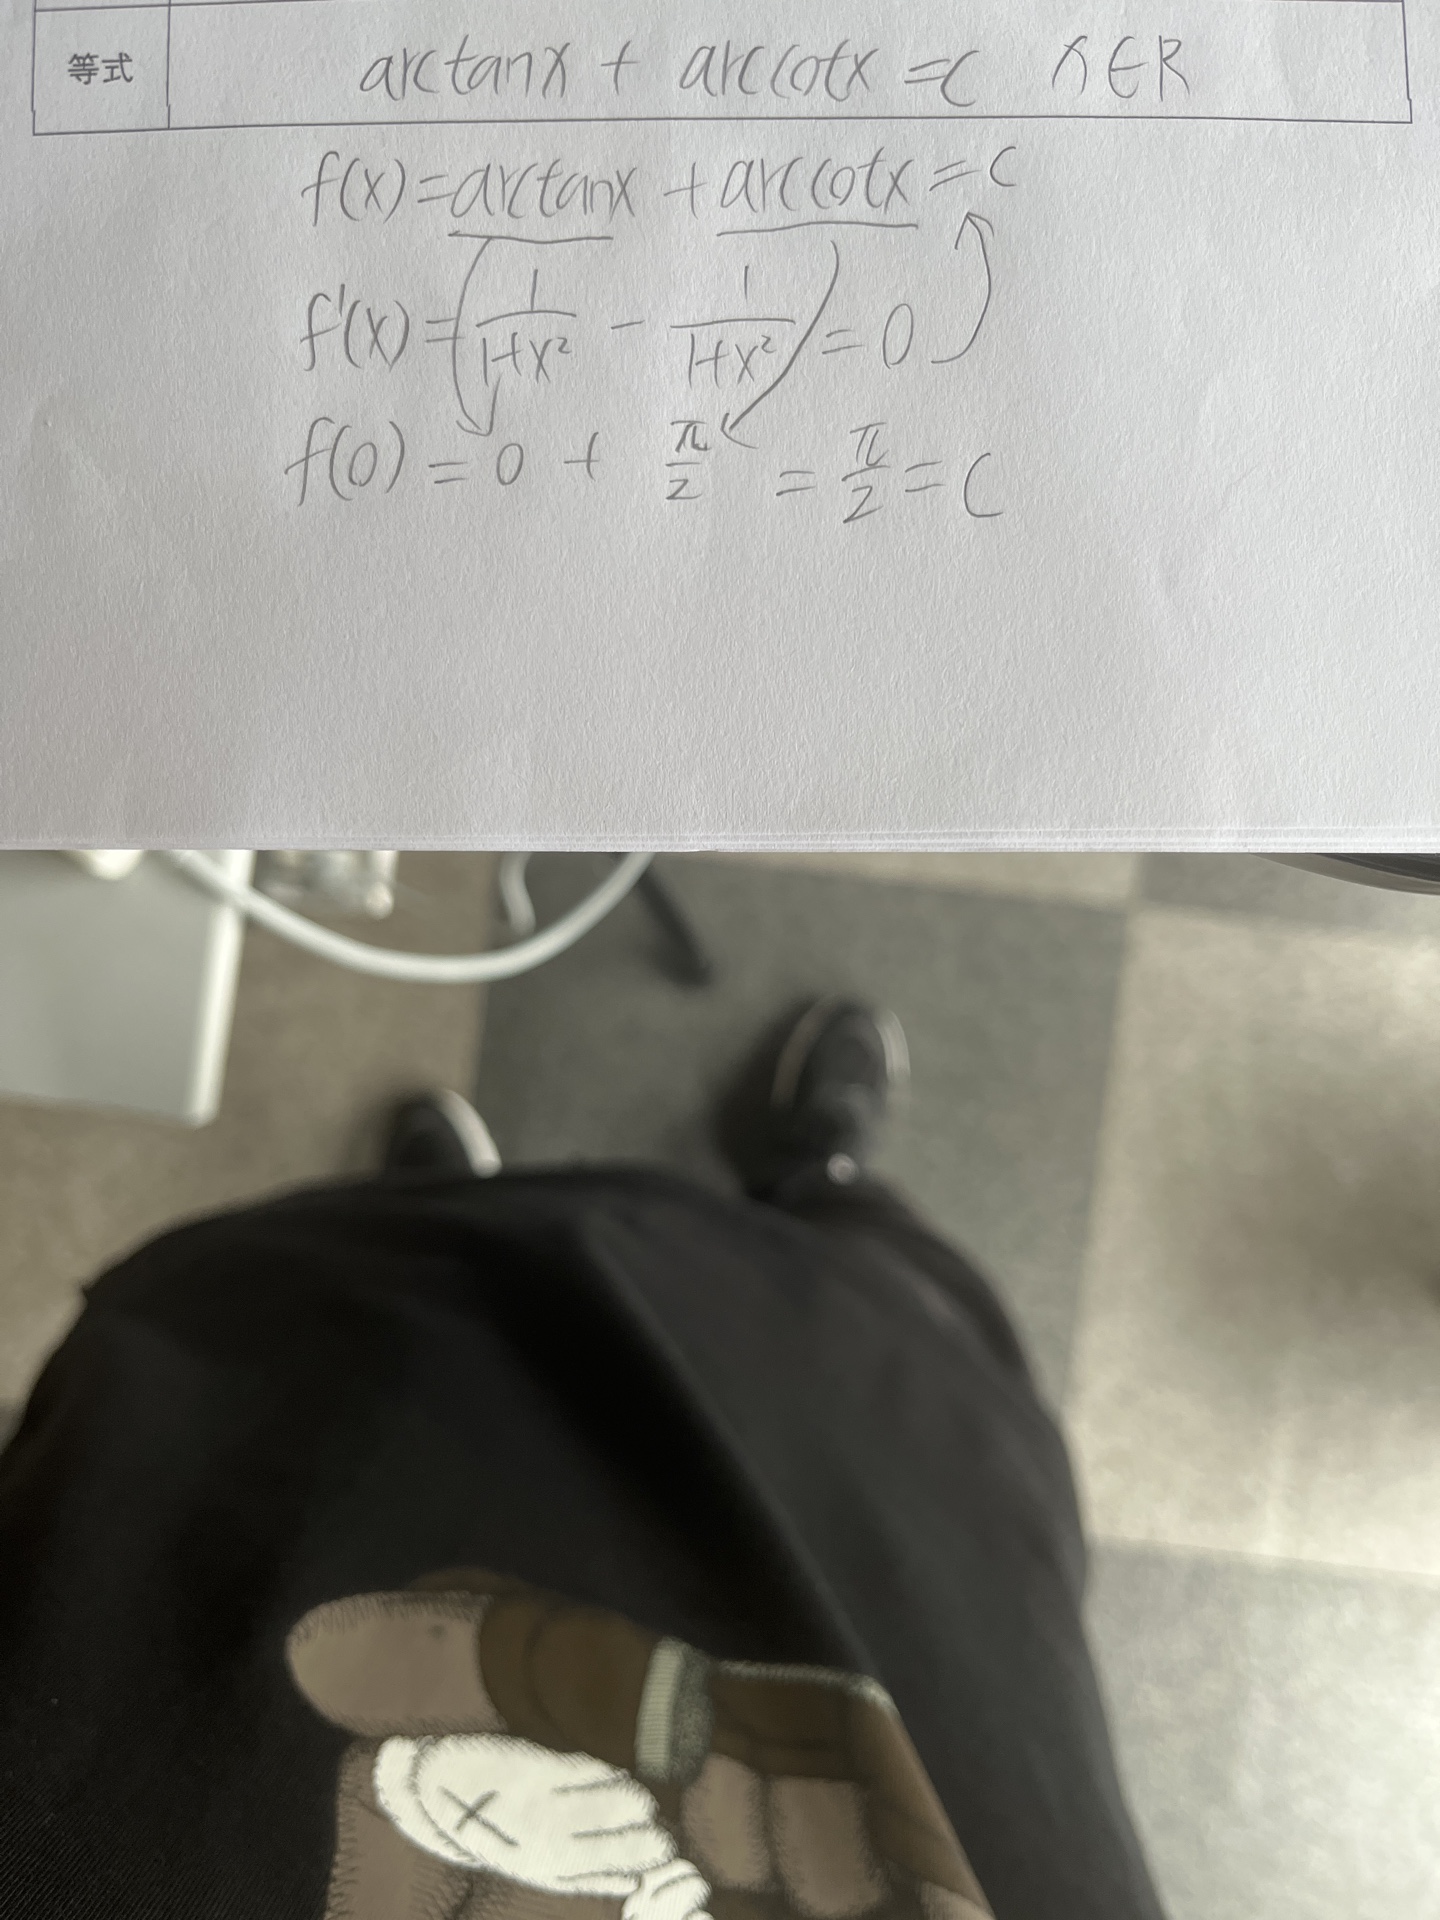 等式 arctanx + arccotx = C x∈R
f(x)=arctanx + arccotx = C
f'(x)=(1/1+x² - 1/1+x²)=0
f(0)=0 + π/2 = π/2 = C